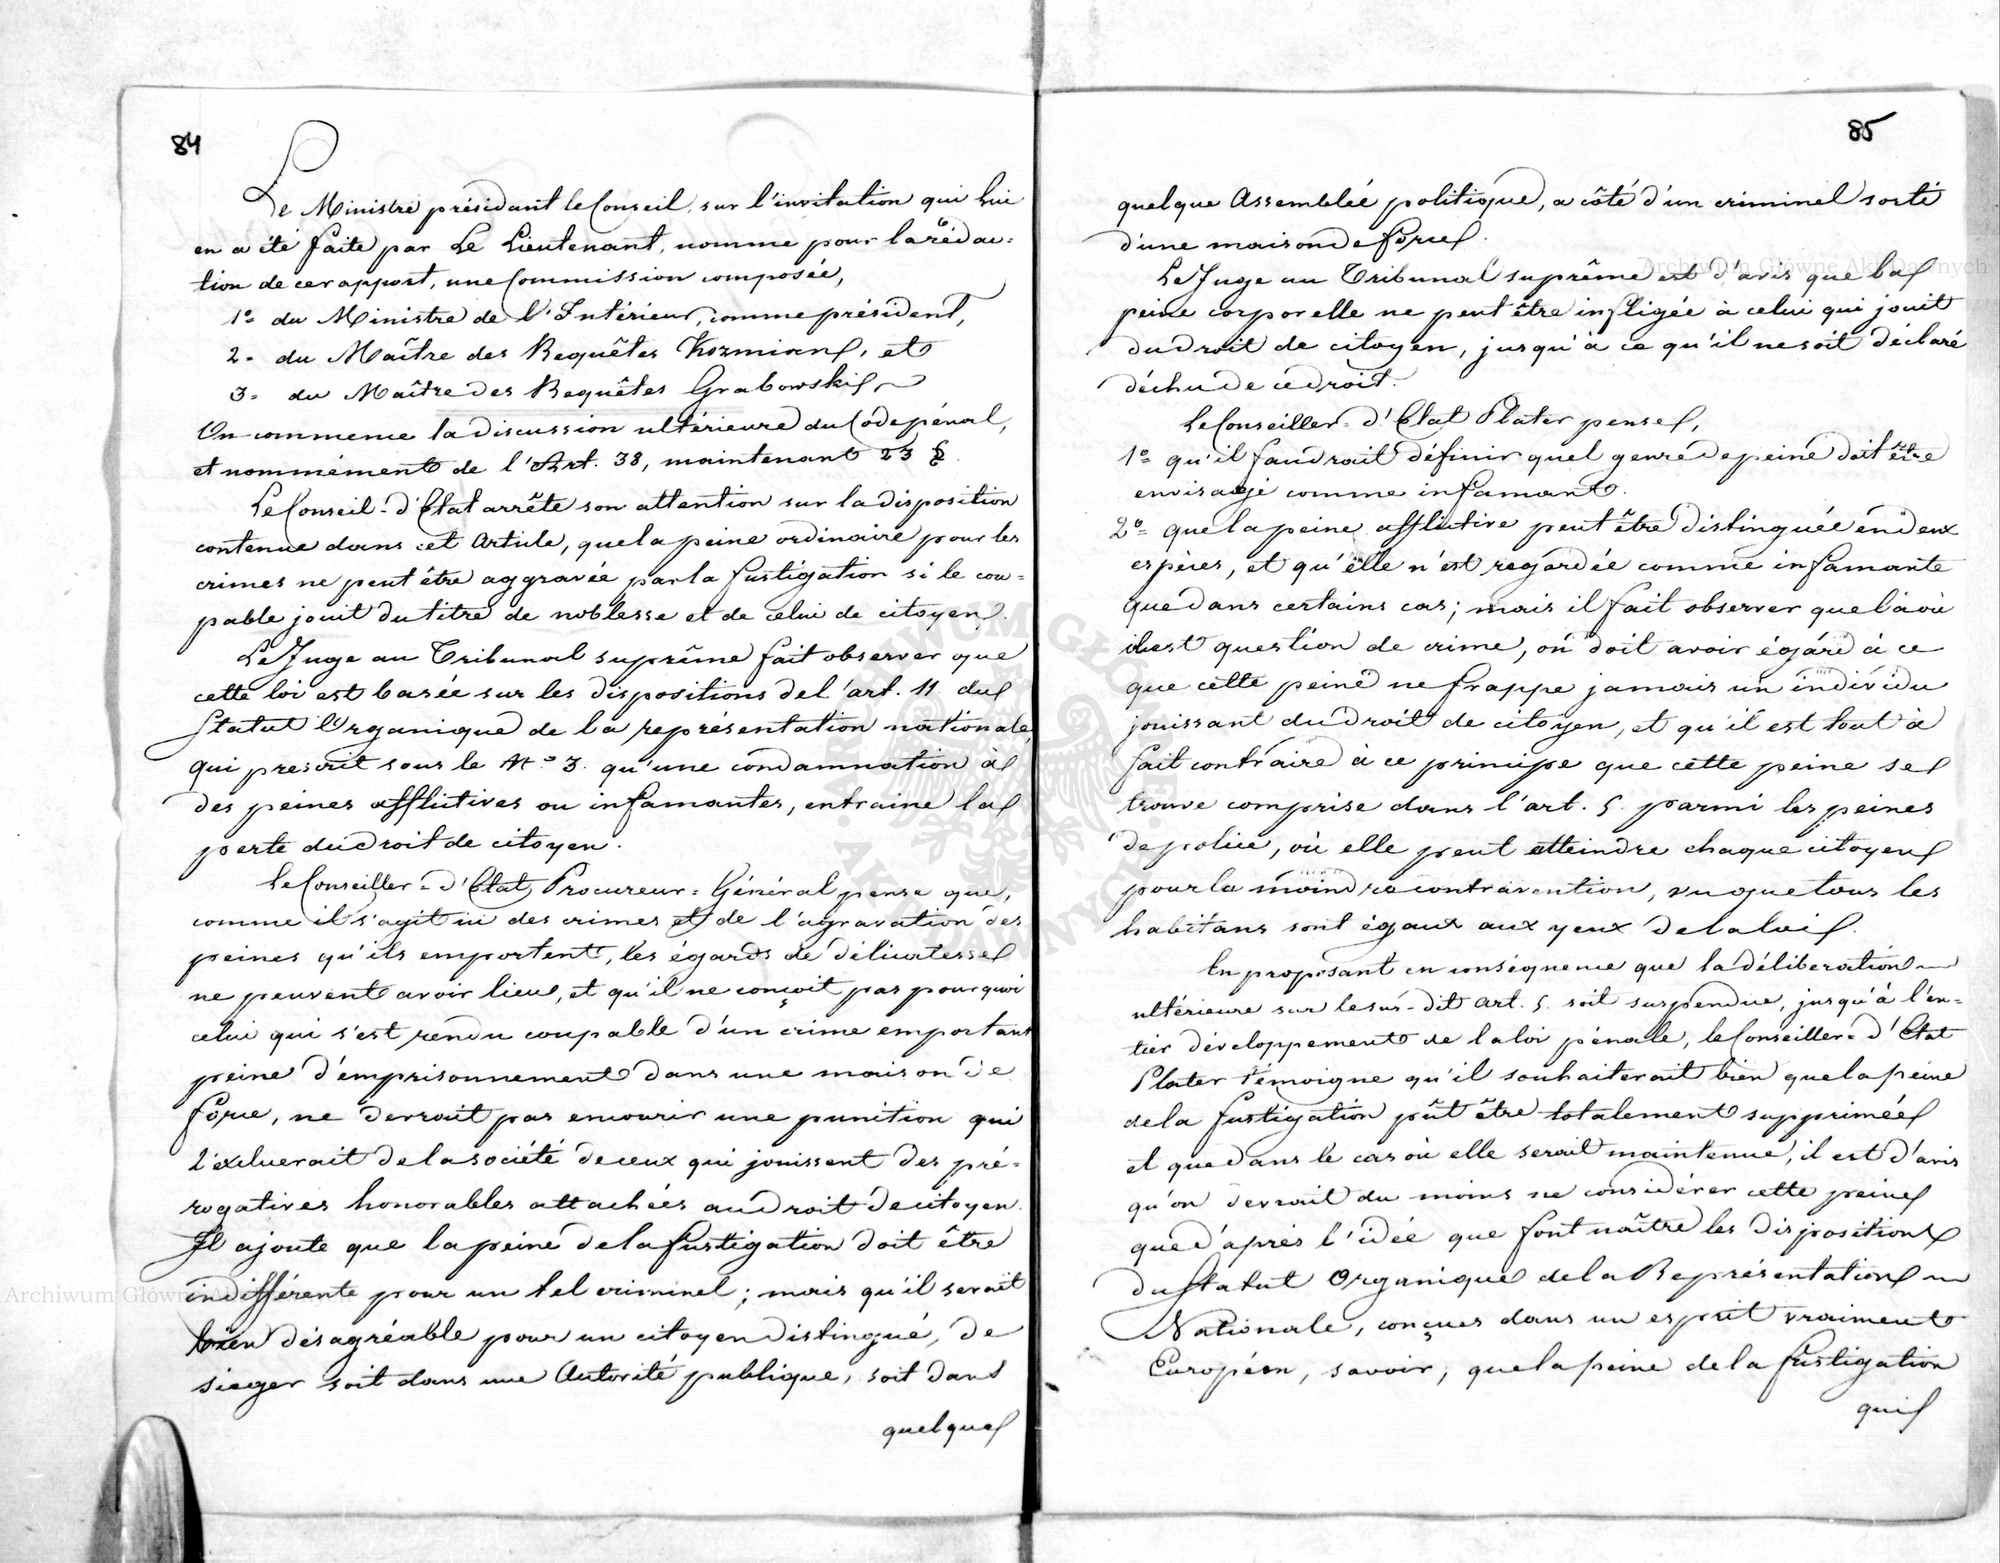 84
Le Ministre présidant le Conseil, sur l'invitation qui lui
en a été faite par Le Lieutenant, nomme pour la rédac=
tion de ce rapport, une Commission composée,
1º du Ministre de l'Intérieur, comme président,
2º du Maître des Requêtes Kozmian, et
3º du Maître des Requêtes Grabowski
On commence la discussion ultérieure du Code pénal,
et nommément de l'Art. 38, maintenant 23 §.
Le Conseil-d'Etat arrête son attention sur la disposition
contenue dans cet Article, que la peine ordinaire pour les
crimes ne peut être aggravée par la fustigation si le cou=
pable jouit du titre de noblesse et de celui de citoyen.
Le Juge au Tribunal suprême fait observer que
cette loi est basée sur les dispositions de l'art. 11 du
Statut Organique de la représentation nationale,
qui prescrit sous le Nº 3. qu'une condamnation à
des peines afflictives ou infamantes, entraine la
perte du droit de citoyen.
Le Conseiller=d'Etat Procureur=Général pense que,
comme il s'agit ici des crimes et de l'agravation des
peines qu'ils emportent, les égards de délicatesse
ne peuvent avoir lieu, et qu'il ne conçoit pas pourquoi
celui qui s'est rendu coupable d'un crime emportant
peine d'emprisonnement dans une maison de
force, ne devrait pas encourir une punition qui
l'excluerait de la société de ceux qui jouissent des pré=
rogatives honorables attachées au droit de citoyen.
Il ajoute que la peine de la fustigation doit être
indifférente pour un tel criminel; mais qu'il serait
bien désagréable pour un citoyen distingué, de
sieger soit dans une Autorité publique, soit dans
quelque
85
quelque Assemblée politique, a côté d'un criminel sorti
d'une maison de force.
Le Juge au Tribunal suprême est d'avis que la
peine corporelle ne peut être infligée à celui qui jouit
du droit de citoyen, jusqu'à ce qu'il ne soit déclaré
déchu de ce droit.
Le Conseiller=d'Etat Plater pense,
1º qu'il faudrait définir quel genre de peine doit être
envisagé comme infamant.
2º que la peine afflictive peut être distinguée en deux
espèces, et qu'elle n'est regardée comme infamante
que dans certains cas; mais il fait observer que là où
il est question de crime, on doit avoir égard à ce
que cette peine ne frappe jamais un individu
jouissant du droit de citoyen, et qu'il est tout à
fait contraire à ce principe que cette peine se
trouve comprise dans l'art. 5. parmi les peines
de police, où elle peut atteindre chaque citoyen
pour la moindre contravention, vu que tous les
habitans sont égaux aux yeux de la loi.
En proposant en conséquence que la déliberation
ultérieure sur le sus-dit Art. 5. soit suspendue, jusqu'à l'en=
tier développement de la loi pénale, le Conseiller=d'Etat
Plater témoigne qu'il souhaiterait bien que la peine
de la fustigation pût être totalement supprimée
et que dans le cas où elle serait maintenue, il est d'avis
qu'on devrait du moins ne considérer cette peine
que d'après l'idée que font naître les dispositions
du Statut Organique de la Représentation
Nationale, conçues dans un esprit vraiment
Européen, savoir, que la peine de la fustigation
qui
Archiwum Główne Akt Dawnych